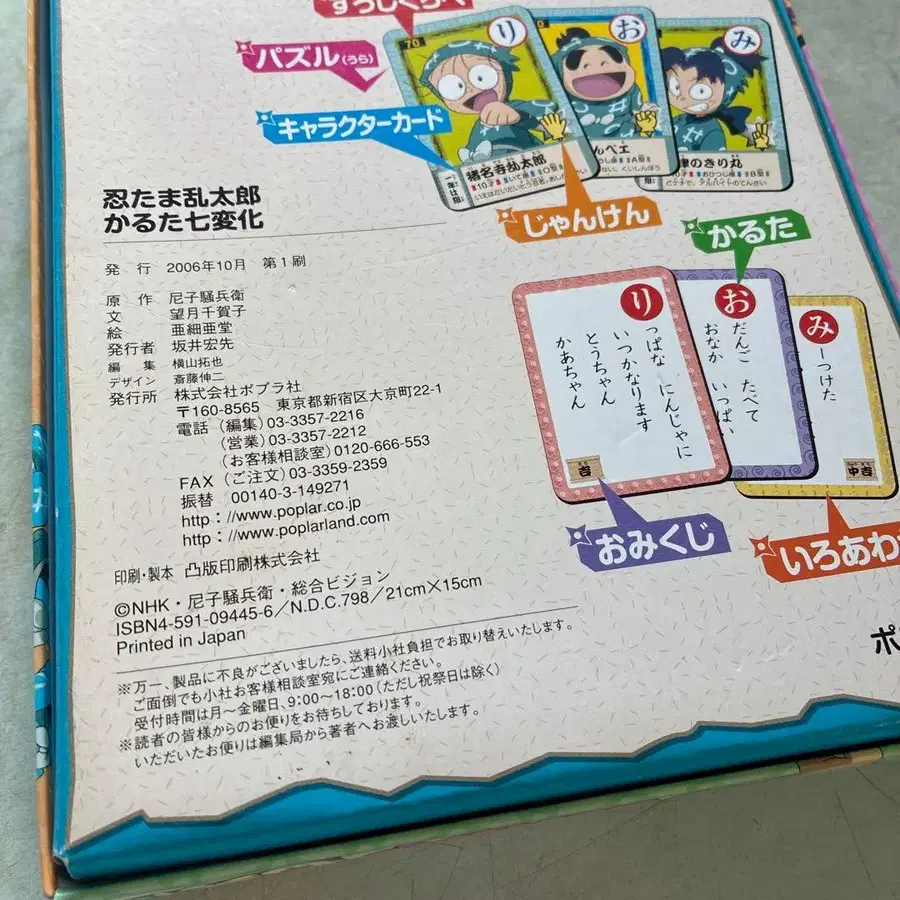 すうじくらべ
パズル(うら)
キャラクターカード
70
り
お
み
猪名寺乱太郎
10才 いて座 O型
んべエ
A型
津のきり丸
10才 おひつじ座 B型
どケチで、アルバイトのてんさい
じゃんけん
かるた
忍たま乱太郎
かるた七変化
発行 2006年10月 第1刷
原作 尼子騒兵衛
文 望月千賀子
絵 亜細亜堂
発行者 坂井宏先
編集 横山拓也
デザイン 斎藤伸二
発行所 株式会社ポプラ社
〒160-8565 東京都新宿区大京町22-1
電話(編集)03-3357-2216
(営業)03-3357-2212
(お客様相談室)0120-666-553
FAX(ご注文)03-3359-2359
振替 00140-3-149271
http://www.poplar.co.jp
http://www.poplarland.com
印刷・製本 凸版印刷株式会社
©NHK・尼子騒兵衛・総合ビジョン
ISBN4-591-09445-6/N.D.C.798/21cm×15cm
Printed in Japan
※万一、製品に不良がございましたら、送料小社負担でお取り替えいたします。
ご面倒でも小社お客様相談室宛にご連絡ください。
受付時間は月〜金曜日、9:00〜18:00(ただし祝祭日は除く)
※読者の皆様からのお便りをお待ちしております。
いただいたお便りは編集局から著者へお渡しいたします。
り
っぱな にんじゃに
いつかなります
とうちゃん
かあちゃん
吉
お
だんご たべて
おなか いっぱい
み
ーつけた
中吉
おみくじ
いろあわ
ポ